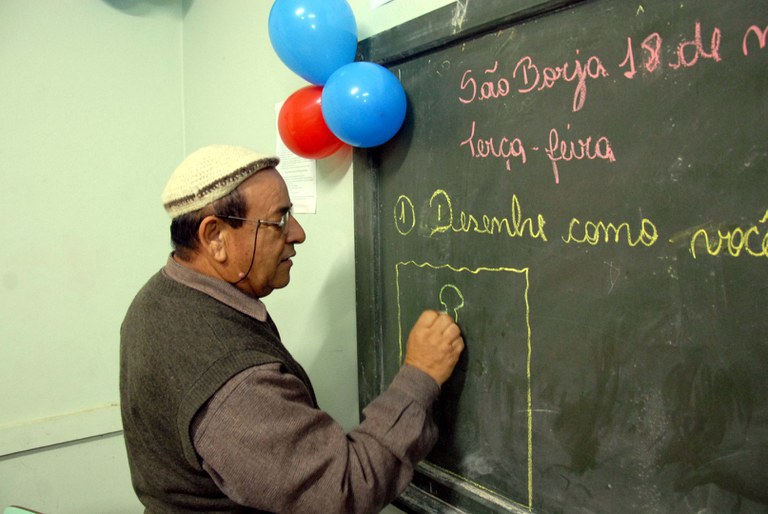 São Borja 18 de
Terça-feira
① Desenhe como você